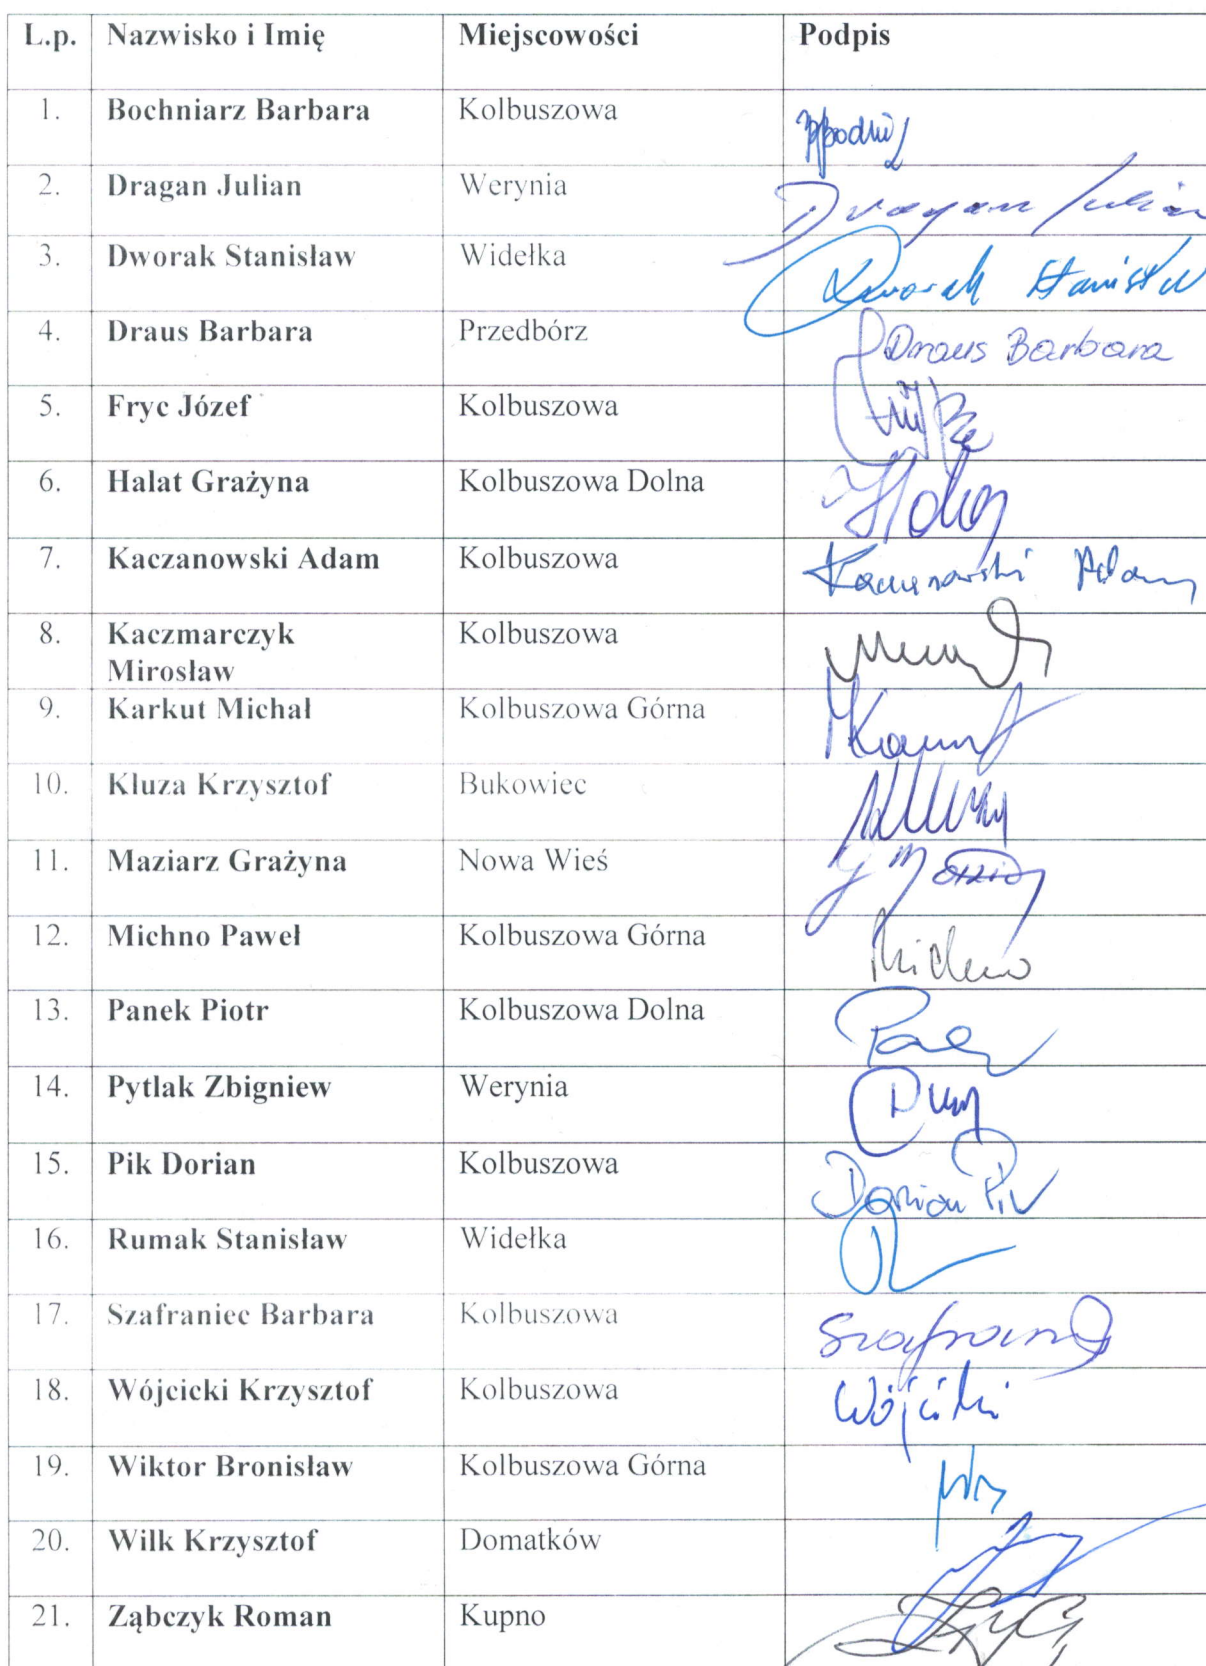 L.p. Nazwisko i Imię Miejscowości Podpis
1. Bochniarz Barbara Kolbuszowa
2. Dragan Julian Werynia Dragan Julian
3. Dworak Stanisław Widełka Dworak Stanisław
4. Draus Barbara Przedbórz Draus Barbara
5. Fryc Józef Kolbuszowa
6. Halat Grażyna Kolbuszowa Dolna
7. Kaczanowski Adam Kolbuszowa Kaczanowski Adam
8. Kaczmarczyk Kolbuszowa
Mirosław
9. Karkut Michał Kolbuszowa Górna
10. Kluza Krzysztof Bukowiec
11. Maziarz Grażyna Nowa Wieś
12. Michno Paweł Kolbuszowa Górna Michno
13. Panek Piotr Kolbuszowa Dolna
14. Pytlak Zbigniew Werynia
15. Pik Dorian Kolbuszowa Dorian Pik
16. Rumak Stanisław Widełka
17. Szafraniec Barbara Kolbuszowa
18. Wójcicki Krzysztof Kolbuszowa Wójcicki
19. Wiktor Bronisław Kolbuszowa Górna
20. Wilk Krzysztof Domatków
21. Ząbczyk Roman Kupno